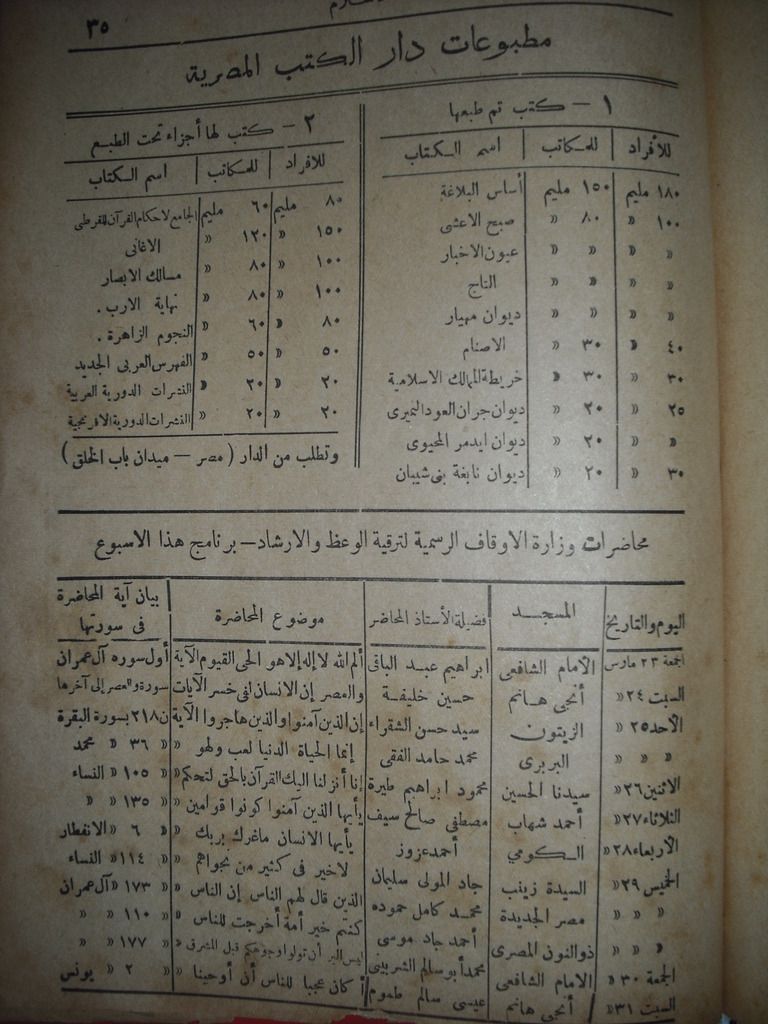 ٣٥
مطبوعات دار الكتب المصرية
١ — كتب تم طبعها
للأفراد | للمكاتب | اسم الكتاب
١٨٠ مليم | ١٥٠ مليم | أساس البلاغة
١٠٠ » | ٨٠ » | صبح الاعشى
» » | » » | عيون الاخبار
» » | » » | التاج
» » | » » | ديوان مهيار
٤٠ » | ٣٠ » | الاصنام
٣٠ » | ٣٠ » | خريطة الممالك الاسلامية
٢٥ » | ٢٠ » | ديوان جران العود النميرى
» » | ٢٠ » | ديوان ايدمر المحيوى
٣٠ » | ٢٠ » | ديوان نابغة بنى شيبان
٢ — كتب لها أجزاء تحت الطبع
للافراد | للمكاتب | اسم الكتاب
٨٠ مليم | ٦٠ مليم | الجامع لاحكام القرآن للقرطى
١٥٠ » | ١٢٠ » | الاغانى
١٠٠ » | ٨٠ » | مسالك الابصار
١٠٠ » | ٨٠ » | نهاية الارب .
٨٠ » | ٦٠ » | النجوم الزاهرة .
٥٠ » | ٥٠ » | الفهرس العربى الجديد
٢٠ » | ٢٠ » | النشرات الدورية العربية
٢٠ » | ٢٠ » | النشرات الدورية الافرنجية
وتطلب من الدار ( مصر — ميدان باب الخلق )
محاضرات وزارة الاوقاف الرسمية لترقية الوعظ والارشاد — برنامج هذا الاسبوع
اليوم والتاريخ | المسجد | فضيلة الأستاذ المحاضر | موضوع المحاضرة | بيان آية المحاضرة فى سورتها
الجمعة ٢٣ مارس | الامام الشافعى | ابراهيم عبد الباقى | ألم الله لا إله إلا هو الحى القيوم الآية | أول سوره آل عمران
السبت ٢٤ » | أنجى هانم | حسين خليفة | والعصر إن الانسان لفى خسر الآيات | سورة والعصر إلى آخرها
الأحد ٢٥ » | الزيتون | سيد حسن الشقراء | إن الذين آمنوا والذين هاجروا الآية | ن ٢١٨ بسورة البقرة
» » » | البربرى | محمد حامد الفقى | إنما الحياة الدنيا لعب ولهو » | ٣٦ » محمد
الاثنين ٢٦ » | سيدنا الحسين | محمود ابراهيم طيرة | إنا أنزلنا اليك القرآن بالحق لتحكم » | ١٠٥ » النساء
الثلاثاء ٢٧ » | أحمد شهاب | مصطفى صالح سيف | يأيها الذين آمنوا كونوا قوامين » | ١٣٥ » »
الأربعاء ٢٨ » | الكومي | أحمد عزوز | يأيها الانسان ماغرك بربك » | ٦ » الانفطار
الخميس ٢٩ » | السيدة زينب | جاد المولى سليمان | لاخير فى كثير من نجواهم » | ١١٤ » النساء
» » » | مصر الجديدة | محمد كامل حموده | الذين قال لهم الناس إن الناس » | ١٧٣ » آل عمران
» » » | ذوالنون المصرى | أحمد جاد موسى | كنتم خير أمة أخرجت للناس » | ١١٠ » »
الجمعة ٣٠ » | الامام الشافعى | محمد أبو سالم الشربينى | ليس البر أن تولوا وجوهكم قبل المشرق » | ١٧٧ » »
السبت ٣١ » | أنجى هانم | عيسى سالم طموم | أكان عجبا للناس أن أوحينا » | ٢ » يونس